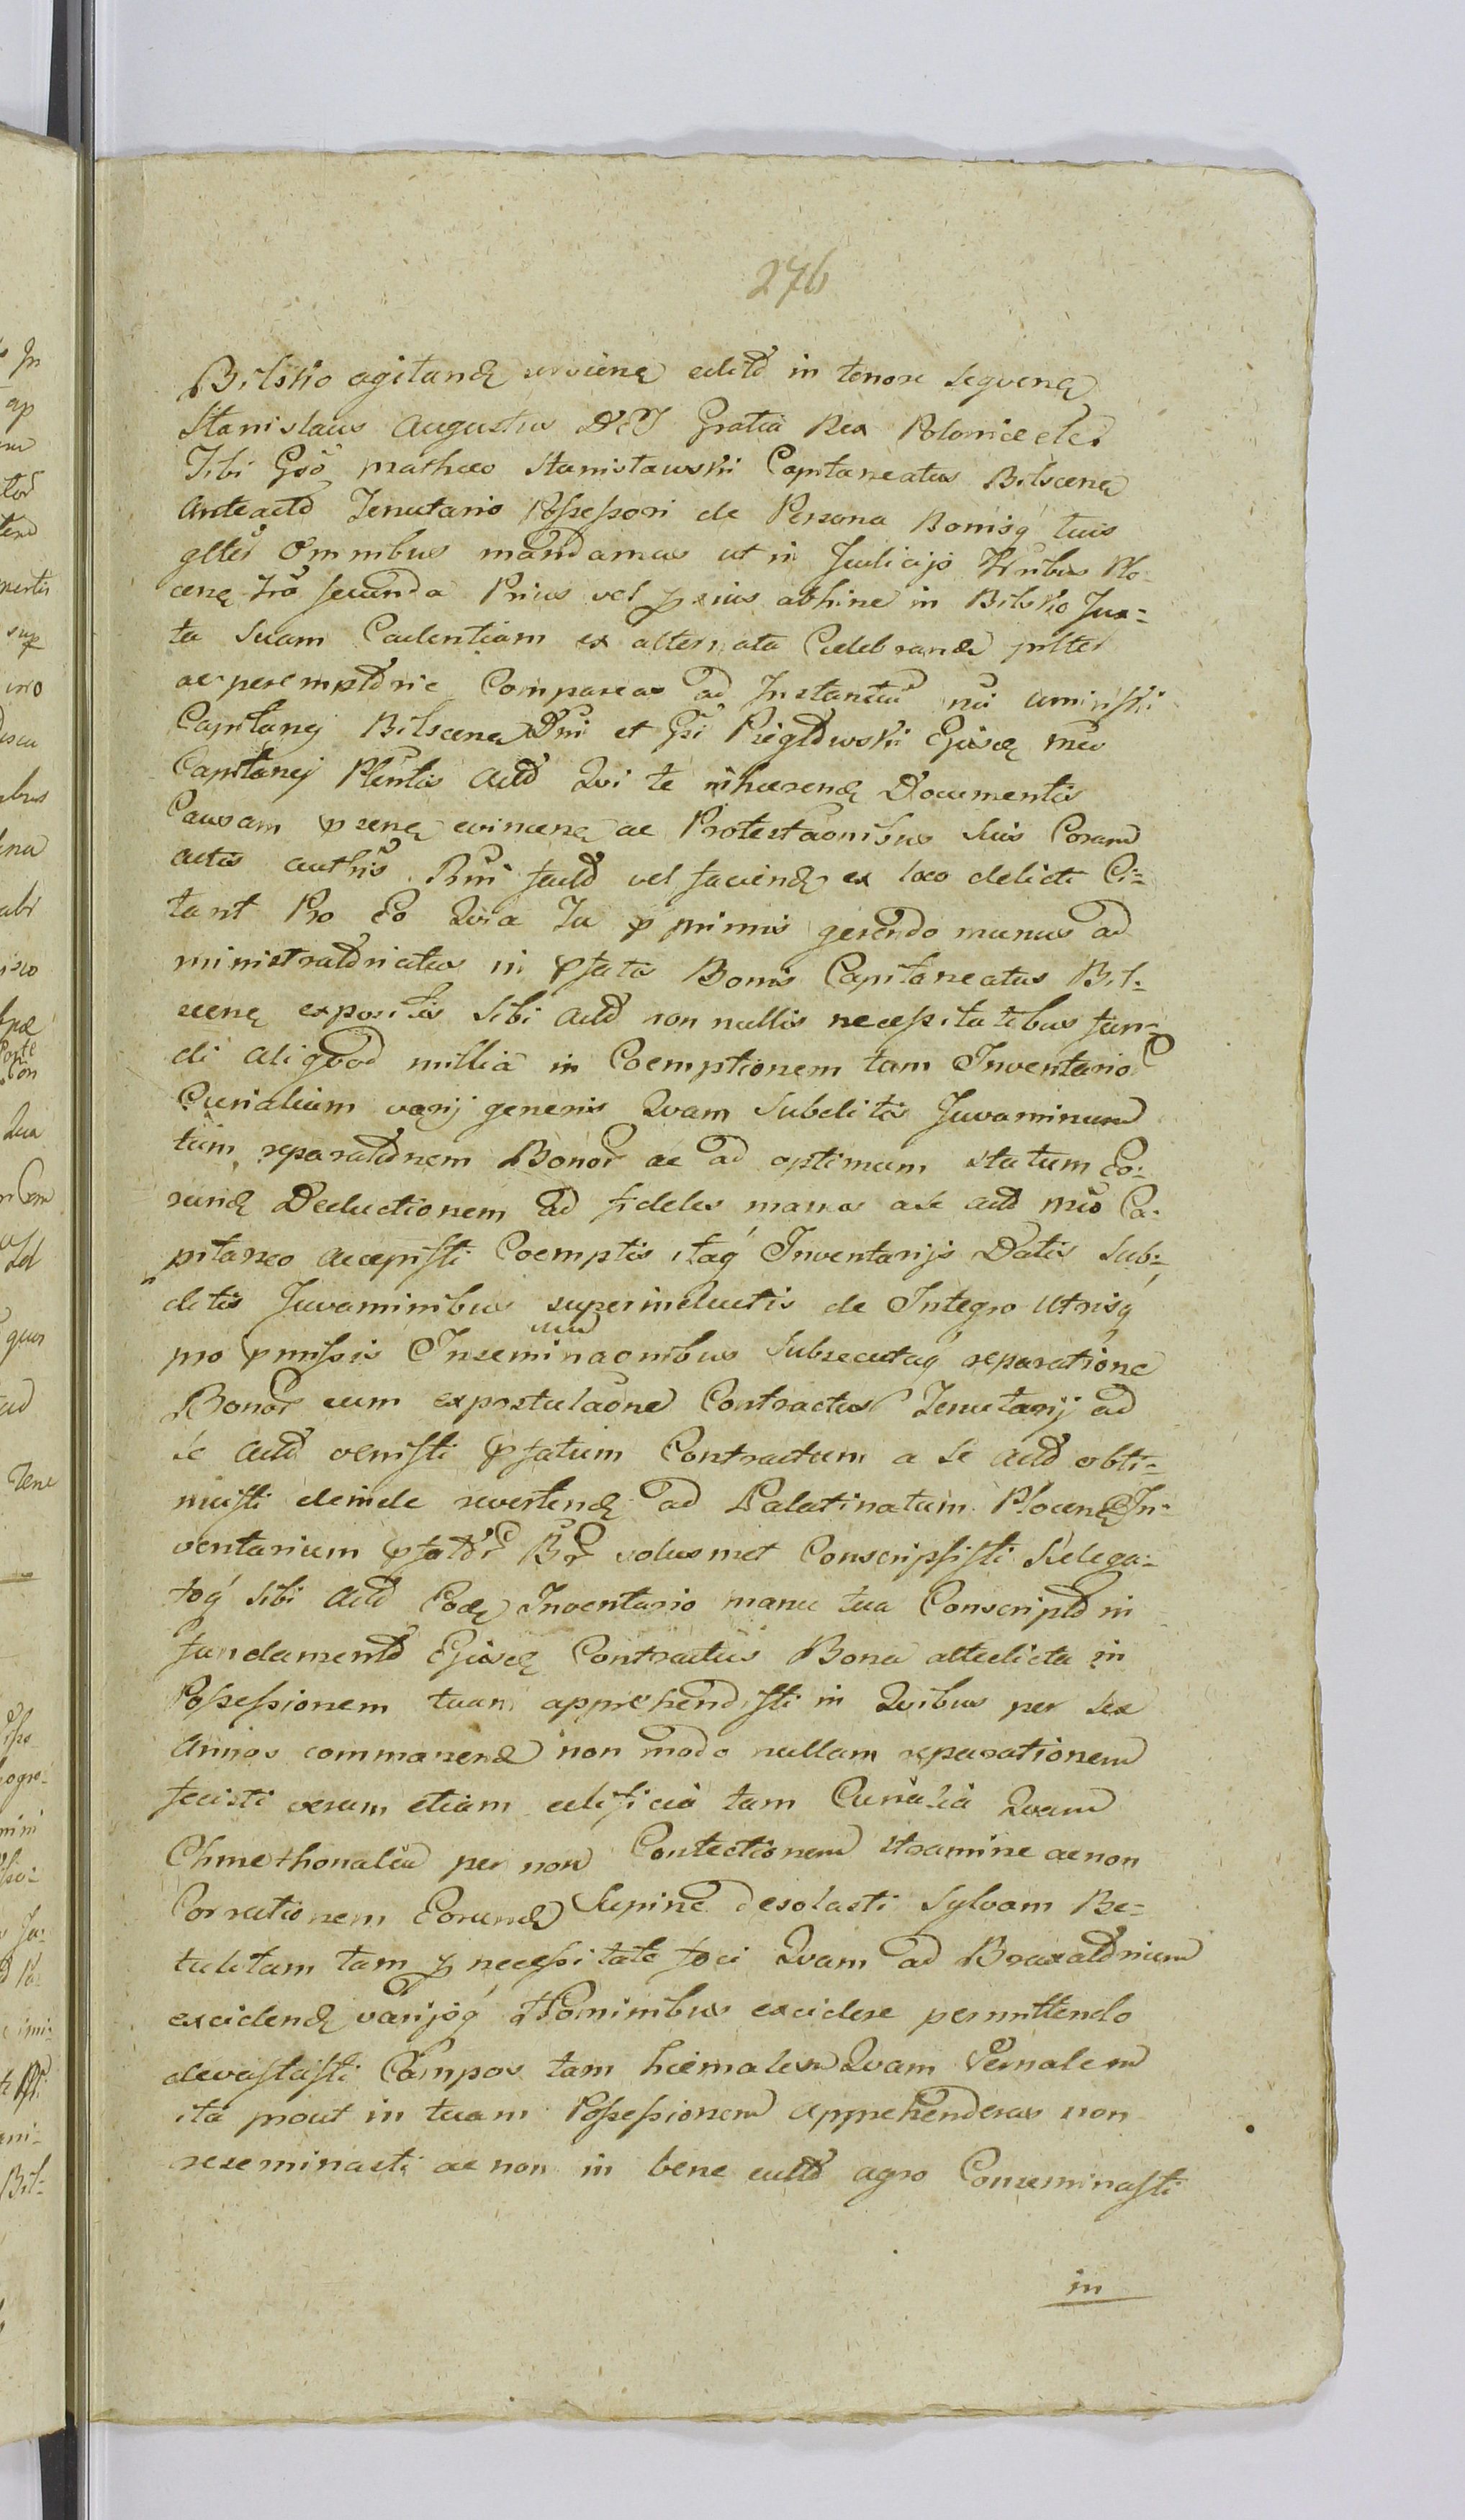 276
Bilsko agitand serviens edito in tenore sequens
Stanislaus Augustus DEI Gratia Rex Poloniae etc
Tibi Gso Mathaeo Stanisławski Capitaneatus Bilscens
Anteacto Tenutario Possessori de Persona Bonisq tuis
glter Omnibus mandamus ut in Judicijs Ttribus Plo-
cens fro secunda Prius vel prius abhinc in Bilsko Jux=
ta Suam Cadentiam ex alternata Celebrand pltter
ac peremptorie Compareas ad Instantia
Capitanej Bilscens Dni et Gsi Ejusd mei
Capitanej Plentis Acto Qvi te inhaerend Documentis
Causam prens evincens ac Protestaonibus suis Coram
actis authis Rni facto vel faciend ex loco delicti Ci=
tant Pro Eo Qvia Tu p primis gerendo munus ad
ministratoriatus in pfatis Bonis Capitaneatus Bil-
scens expositis sibi acto non nullis necessitatibus fun=
di aliqvod millia in Coemptionem tam Inventario
Curialium varij generis Qvam Subditis Juvaminum
tum reparatonem Bonor ac ad optimum statum Eo-
rund Deductionem ad fideles manus a se acto meo Ca-
pitaneo accepisti Coemptis itaq Inventarijs Datis Sub=
ditis Juvaminibus superinductis de Integro utrisq
pro pmissis Inseminaonibus Subsecutaq reparatione
Bonor cum expostulaone Contractus Tenutarij ad
se acto venisti pfatum Contractum a se acto obti=
nuisti deinde revertend ad Palatinatum Plocens In-
ventarium pfator Br solusmet Conscripsisti Relega-
toq sibi acto Eod Inventario manu tua Conscripto in
fundamento Ejusd Contractus Bona attedicta in
Possessionem tuam apprehendisti in Qvibus per sex
Annos commanend non modo nullam reparationem
fecisti verum etiam edificia tam Curialia Qvam
Chmethonalia per non Contectionem stramine ac non
Conservationem Eorund Supine desolasti Sylvam Be=
tulitam tam p necessitate foci Qvam ad Braxatorium
excidend varijsq Hominibus excidere permittendo
devastasti Campos tam hiemalem Qvam Vernalem
ita prout in tuam Possessionem apprehenderas non
reseminasti ac non in bene culto agro Conseminasti
in